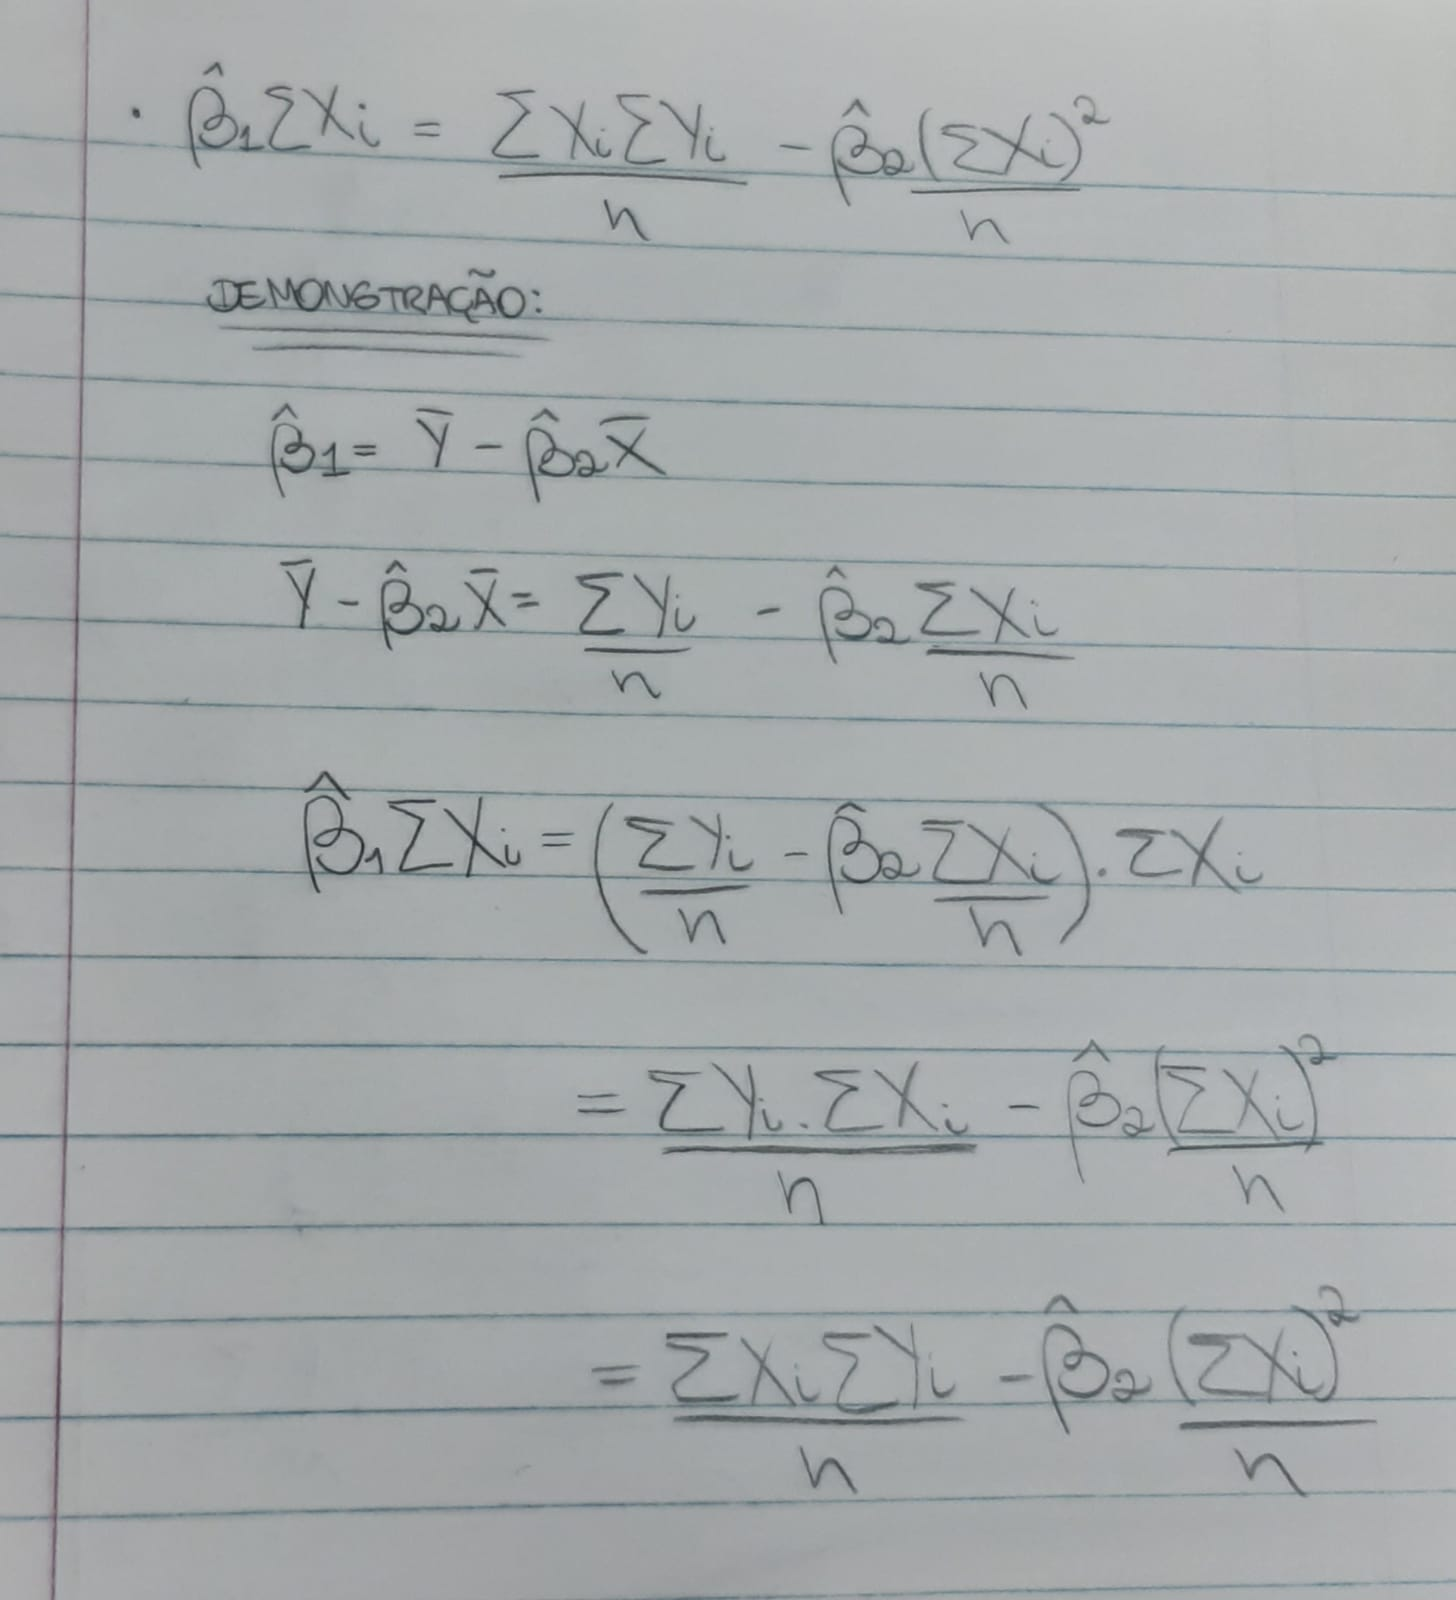 · β̂₁ΣXi = ΣXiΣYi/n - β̂₂(ΣXi)²/n
DEMONSTRAÇÃO:
β̂1 = Ȳ - β̂₂X̄
Ȳ - β̂₂X̄ = ΣYi/n - β̂₂ΣXi/n
β̂₁ΣXi = (ΣYi/n - β̂₂ΣXi/n) . ΣXi
= ΣYi . ΣXi/n - β̂₂(ΣXi)²/n
= ΣXiΣYi/n - β̂₂(ΣXi)²/n